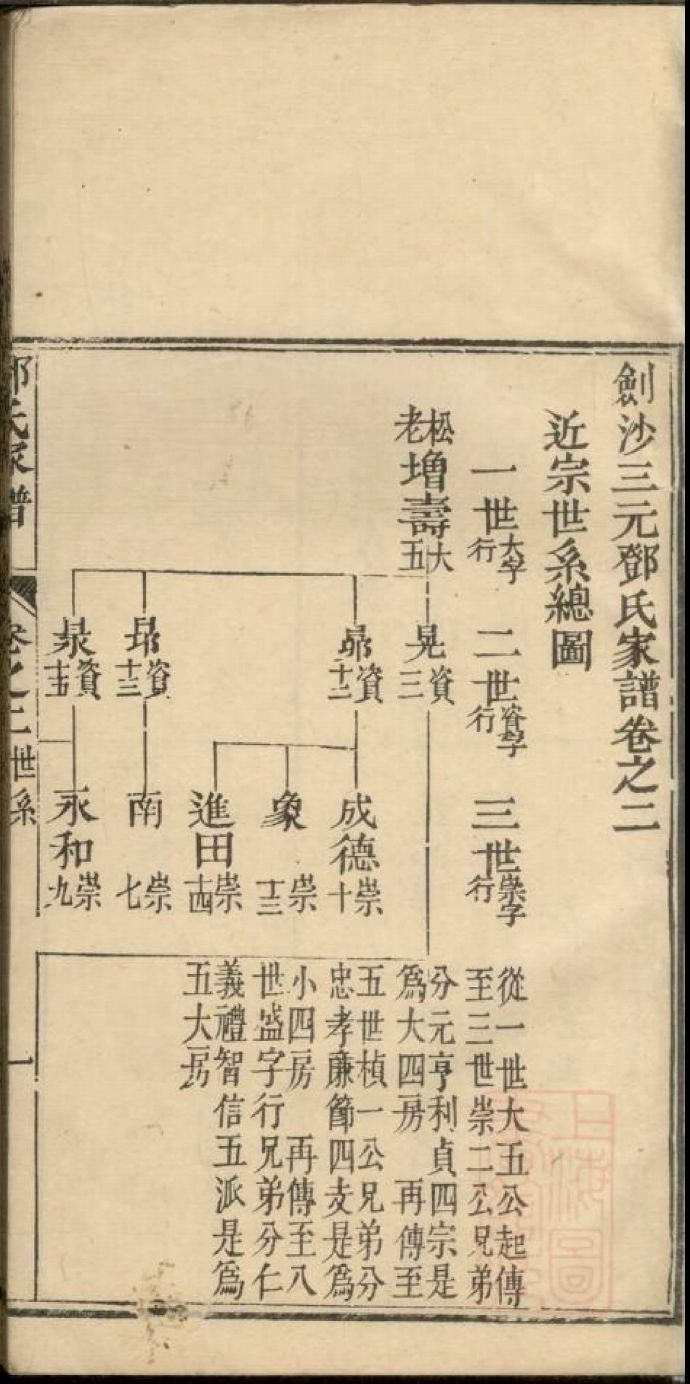 劍沙三元鄧氏家譜卷之二
近宗世系總圖
一世大字行
二世資字行
三世崇字行
松老增壽大五
晃資三
昴資十二
昂資十三
資十五
成德崇十
象崇十三
進田崇十四
南崇七
永和崇九
從一世大五公起傳
至三世崇二公兄弟
分元亨利貞四宗是
爲大四房 再傳至
五世楨一公兄弟分
忠孝廉節四支是爲
小四房 再傳至八
世盛字行兄弟分仁
義禮智信五派是爲
五大房
鄧氏家譜
卷之二世系
一
上海圖